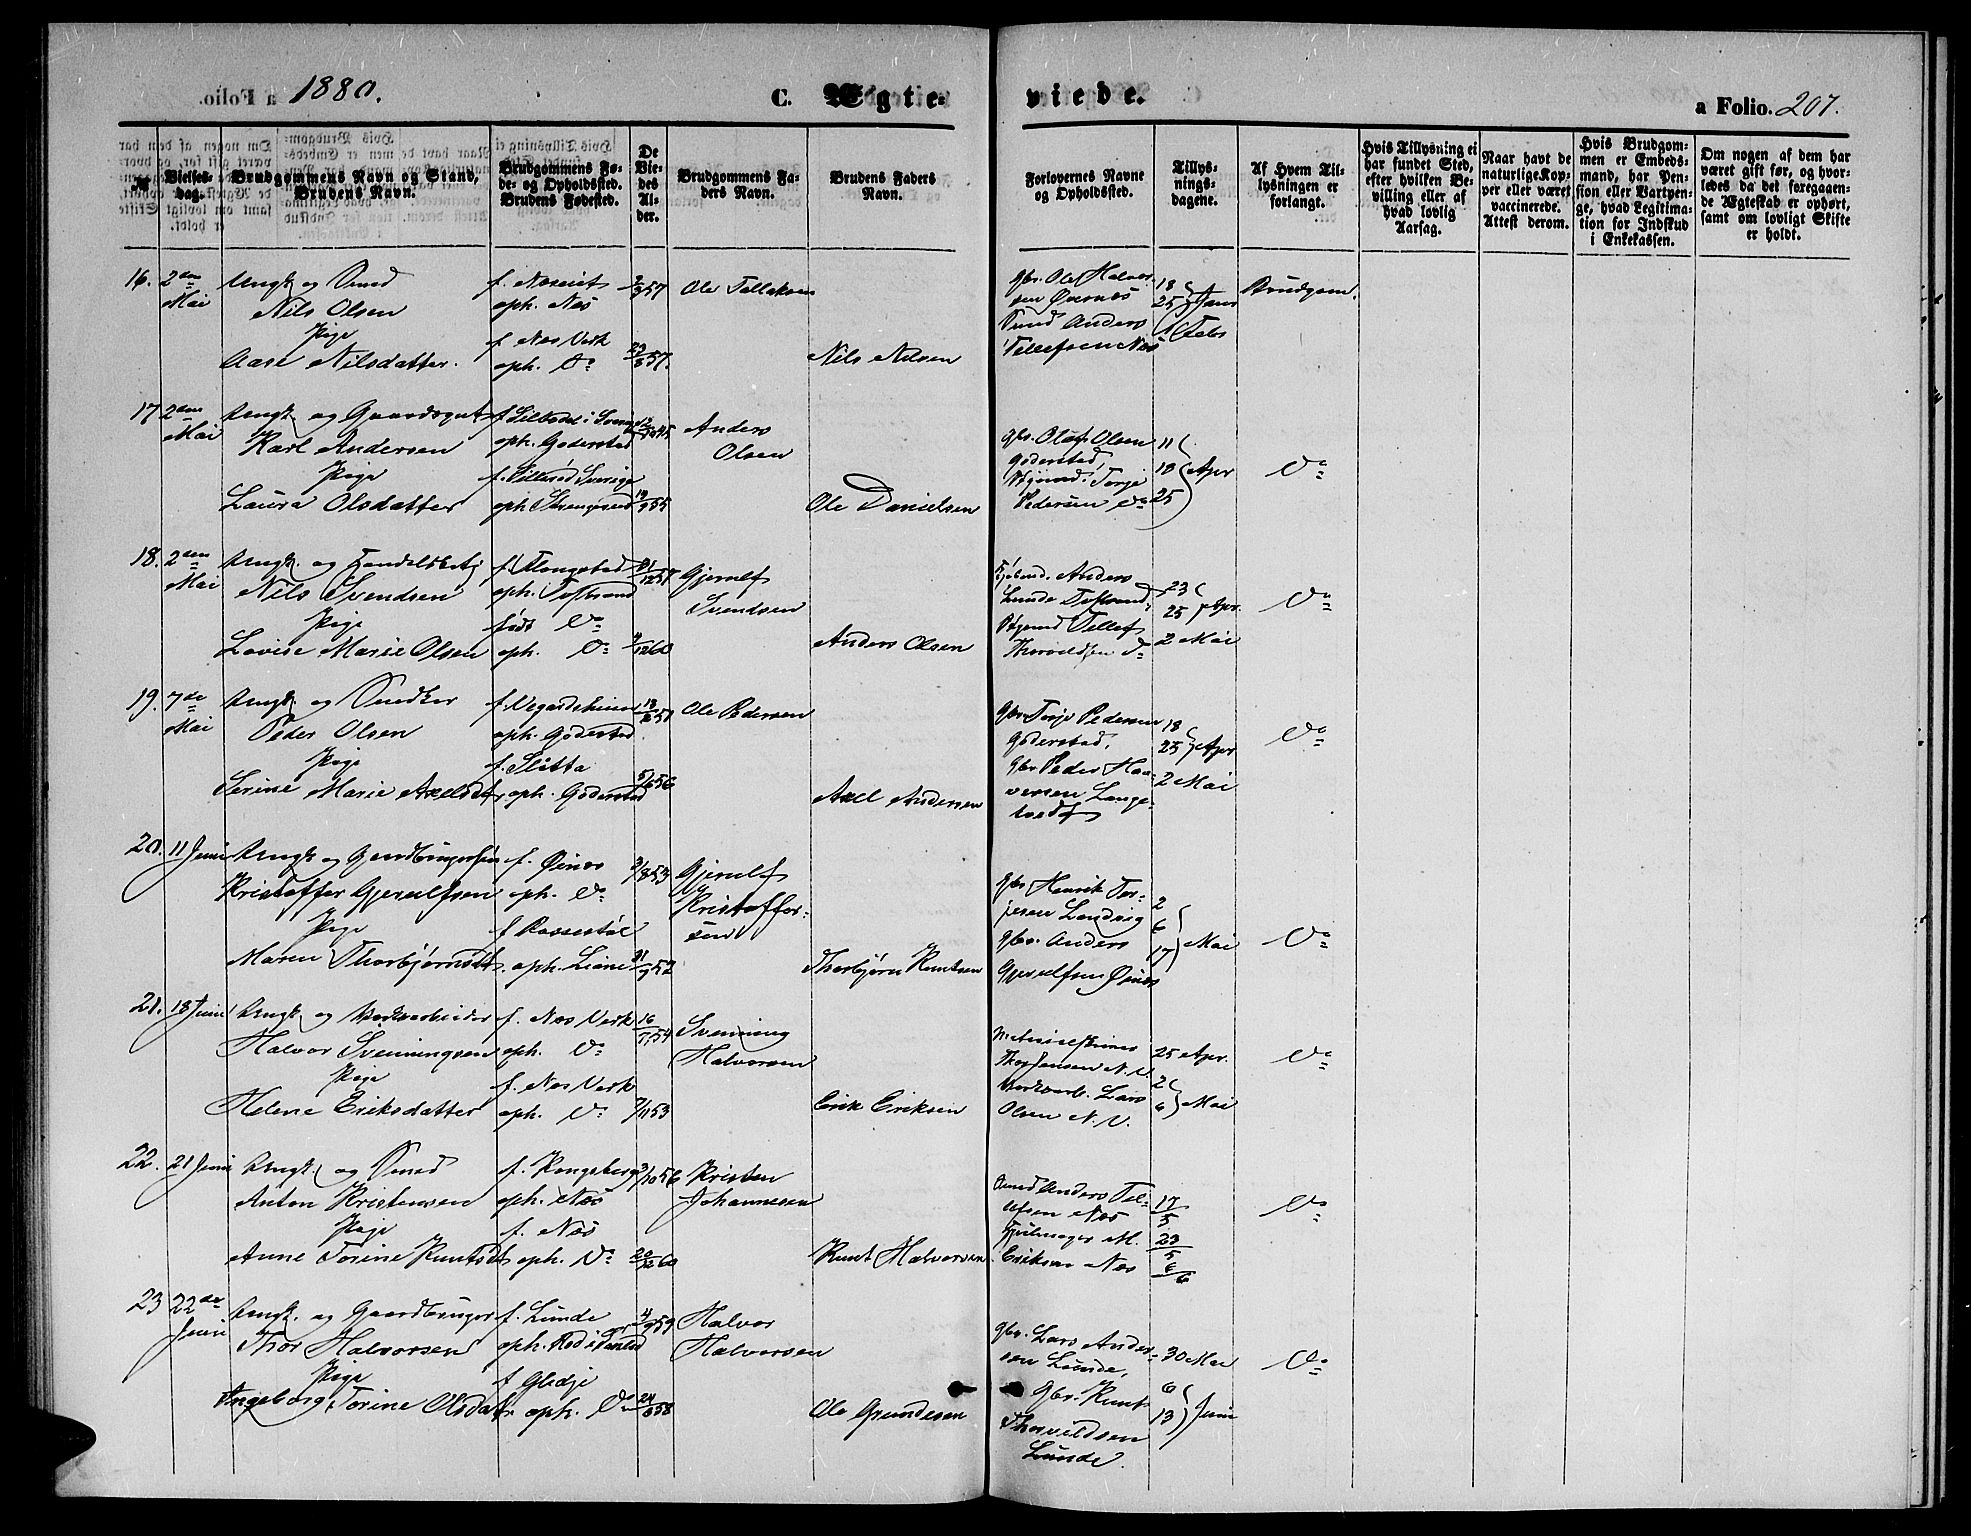 1880.
C. Ægte-
viede.
a Folio. 207.
Vielses-
dag.
Brudgommens Navn og Stand,
Brudens Navn.
Brudgommens Fø-
de- og Opholdssted.
Brudens Fødested.
De
Vie-
des
Al-
der.
Brudgommens Fa-
ders Navn.
Brudens Faders
Navn.
Forlovernes Navne
og Opholdssted.
Tillys-
nings-
dagene.
Af Hvem Til-
lysningen er
forlangt.
Hvis Tillysning ei
har fundet Sted,
efter hvilken Be-
villing eller af
hvad lovlig
Aarsag.
Naar havt de
naturlige Kop-
per eller været
vaccinerede.
Attest derom.
Hvis Brudgom-
men er Embeds-
mand, har Pen-
sion eller Vartpen-
ge, hvad Legitima-
tion for Indskud
i Enkekassen.
Om nogen af dem har
været gift før, og hvor-
ledes da det foregaaen-
de Ægteskab er ophørt,
samt om lovligt Skifte
er holdt.
16. 2den Mai
Ungk og Smed
Nils Olsen
Pige
Aase Nilsdatter.
oph. Næs
f. Næs Verk
oph. Do
57
57.
Ole Tellefsen
Nils Nilsen
Gbr. Ole Halvor-
sen
Smed Anders
Tellefsen Næs
18
25 Janr
1 Febr
Brudgom.
17 2den Mai
Ungk. og
Karl Andersen
Pige
Laura Olsdatter
oph. Goderstad
19/9 55
Anders
Olsen
Ole Danielsen
Gbr. Oluf Olsen
Goderstad,
Torje
Pedersen Do
11
18 Apr
25
Do
18. 2den Mai
Ungk. og
Nils Svendsen
Pige
Lovise Marie Olsen
oph.
født Do
oph. Do
60
Gjerulf
Svendsen
Anders Olsen
Anders
Lunde
Tellef
Do
23
25 Apr.
2 Mai
Do
19. 7de Mai
Ungk. og Snedker
Peder Olsen
Pige
Serine Marie Axelsdtr
f. Vegardsheien
oph. Goderstad
f. Sletta
oph. Goderstad
56
Ole Pedersen
Axel Andersen
Gbr Torje Pedersen
Goderstad,
Gbr Peder Hal-
vorsen Lange-
18
25 Apr
2 Mai
Do
20. 11 Juni
Ungk og Gaardbrugersøn
Kristoffer Gjerulfsen
Pige
Maren Thorbjørnsdtr
f. Øinæs
oph. Do
oph. Liene
53
52
Gjerulf
Kristoffer-
sen
Thorbjørn Knutsen
Gbr Henrik Ter-
jesen Landvig
Gbr. Anders
Gjerulfsen Øinæs
2
6
17 Mai
Do
21. 18 Juni
Ungk og Værksarbeider
Halvor Svenningsen
Pige
Helene Eriksdatter
f. Næs Verk
oph. Do
f. Næs Verk
oph. Do
16/7 54
7/11 53
Svenning
Halvorsen
Erik Eriksen
Jensen N. V.
Lars
Olsen N. V.
25 Apr.
2
6 Mai
Do
22. 21 Juni
Ungk. og Smed
Anton Kristensen
Pige
Anne Torine Knutsdt
f. Kongsberg
oph. Næs
f. Næs
oph. Do
3/10 56
20/12 60
Kristen
Johannesen
Knut Halvorsen
Smed Anders Tel-
lefsen Næs
Hjulmager M.
Eriksen Næs
17/5
23/5
6/6
Do
23 22de Juni
Ungk. og Gaardbruger
Thor Halvorsen
Pige
Ingeborg Torine Olsdatr.
f. Lunde
oph.
f Gledje
oph. Do
4/9 59
58
Halvor
Halvorsen
Ole Gundersen
Gbr. Lars Ander-
sen Lunde,
Gbr. Knut
Thorvildsen
Lunde.
30 Mai
6
13 Juni
Do